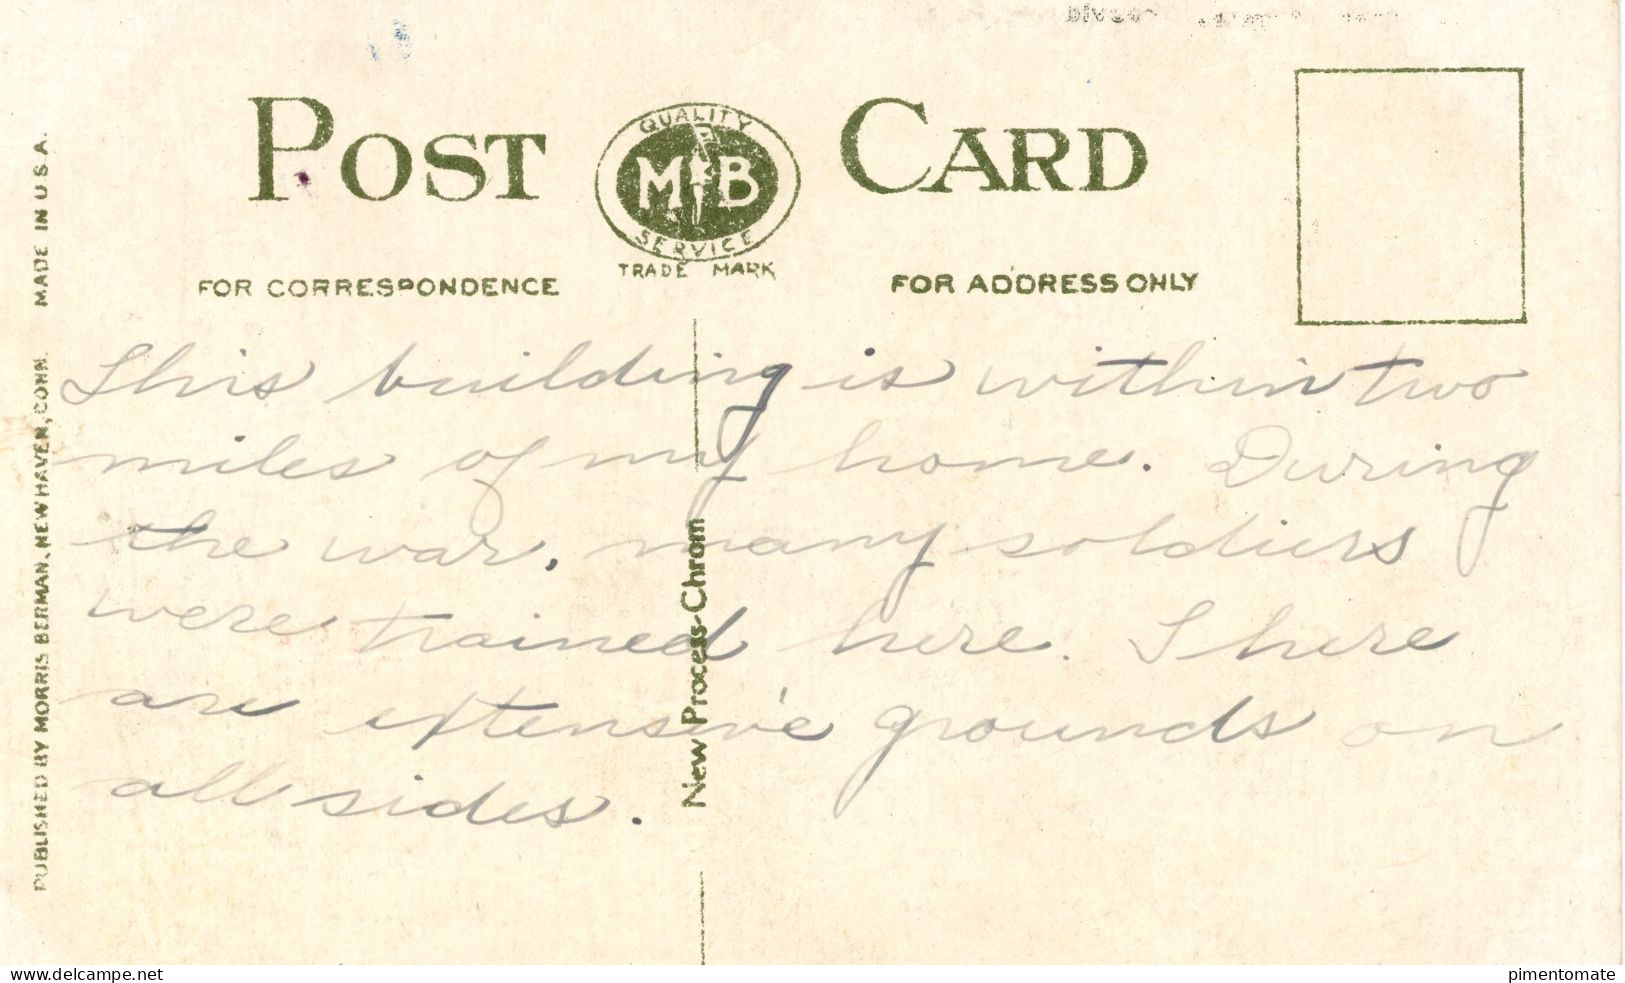 POST CARD
QUALITY
M B
SERVICE
TRADE MARK
FOR CORRESPONDENCE
FOR ADDRESS ONLY
PUBLISHED BY MORRIS BERMAN, NEW HAVEN, CONN. MADE IN U.S.A.
New Process-Chrom
This building is within two
miles of my home. During
the war, many soldiers
were trained here. There
are extensive grounds on
all sides.
www.delcampe.net
pimentomate